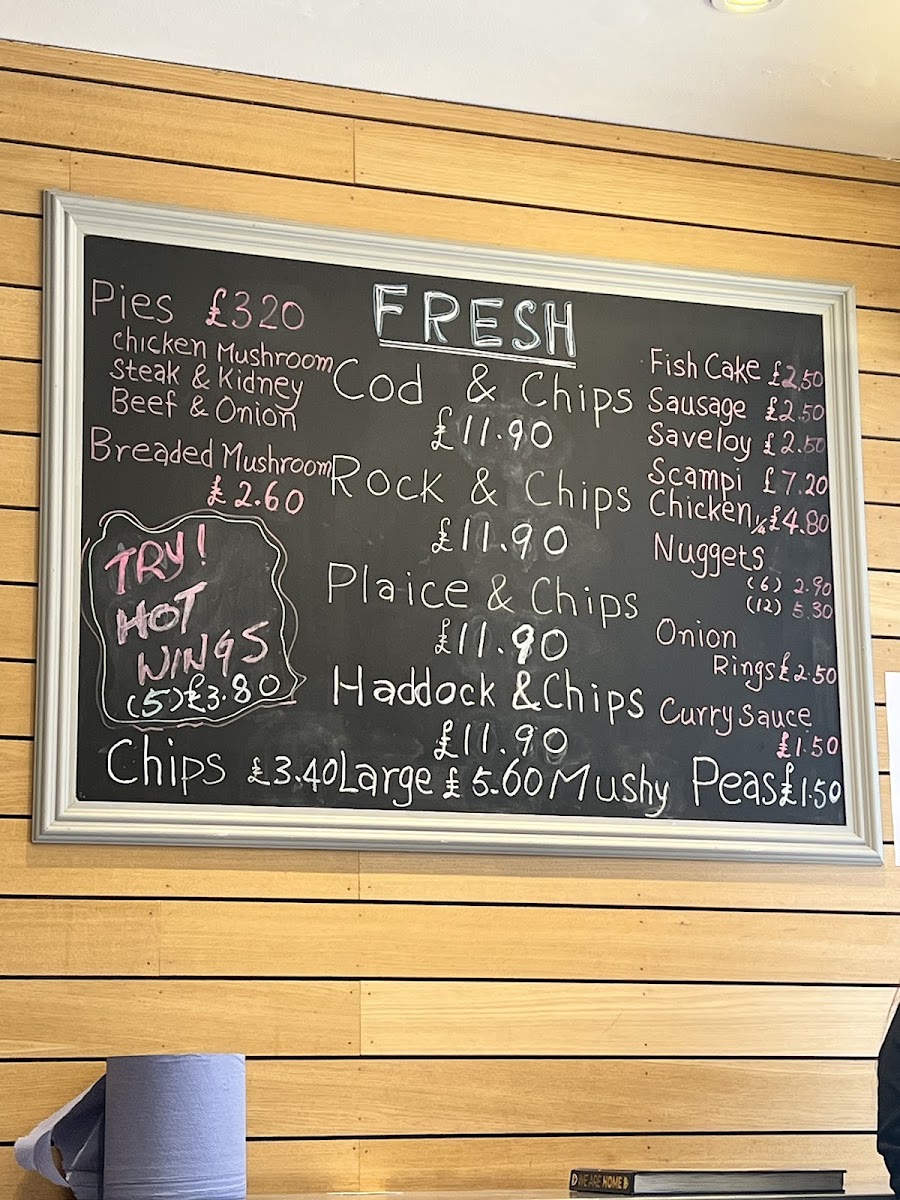 FRESH
Pies £320
chicken Mushroom
Steak & Kidney
Beef & Onion
Breaded Mushroom
£2.60
TRY!
HOT
WINGS
(5) £3.80
Cod & Chips
£11.90
Rock & Chips
£11.90
Plaice & Chips
£11.90
Haddock & Chips
£11.90
Fish Cake £2.50
Sausage £2.50
Saveloy £2.50
Scampi £7.20
Chicken 1/4 £4.80
Nuggets
(6) 2.90
(12) 5.30
Onion
Rings £2.50
Curry Sauce
£1.50
Chips £3.40 Large £5.60 Mushy Peas £1.50
WE ARE HOME